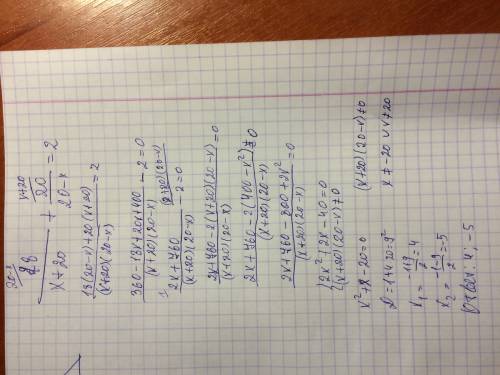 20-x x+20
18/(x+20) + 20/(20-x) = 2
(18(20-x)+20(x+20))/((x+20)(20-x)) = 2
(360-18x+20x+400)/((x+20)(20-x)) - 2 = 0
(2x+760)/((x+20)(20-x)) - 2 = 0 (x+20)(20-x)
(2x+760-2(x+20)(20-x))/((x+20)(20-x)) = 0
(2x+760-2(400-x²))/((x+20)(20-x)) = 0
(2x+760-800+2x²)/((x+20)(20-x)) = 0
2x²+2x-40=0
(x+20)(20-x)≠0
x²+x-20=0 (x+20)(20-x)≠0
D=1+4·20=9² x≠-20 ∪ x≠20
x₁=(-1+9)/2=4
x₂=(-1-9)/2=-5
Ответ: 4, -5